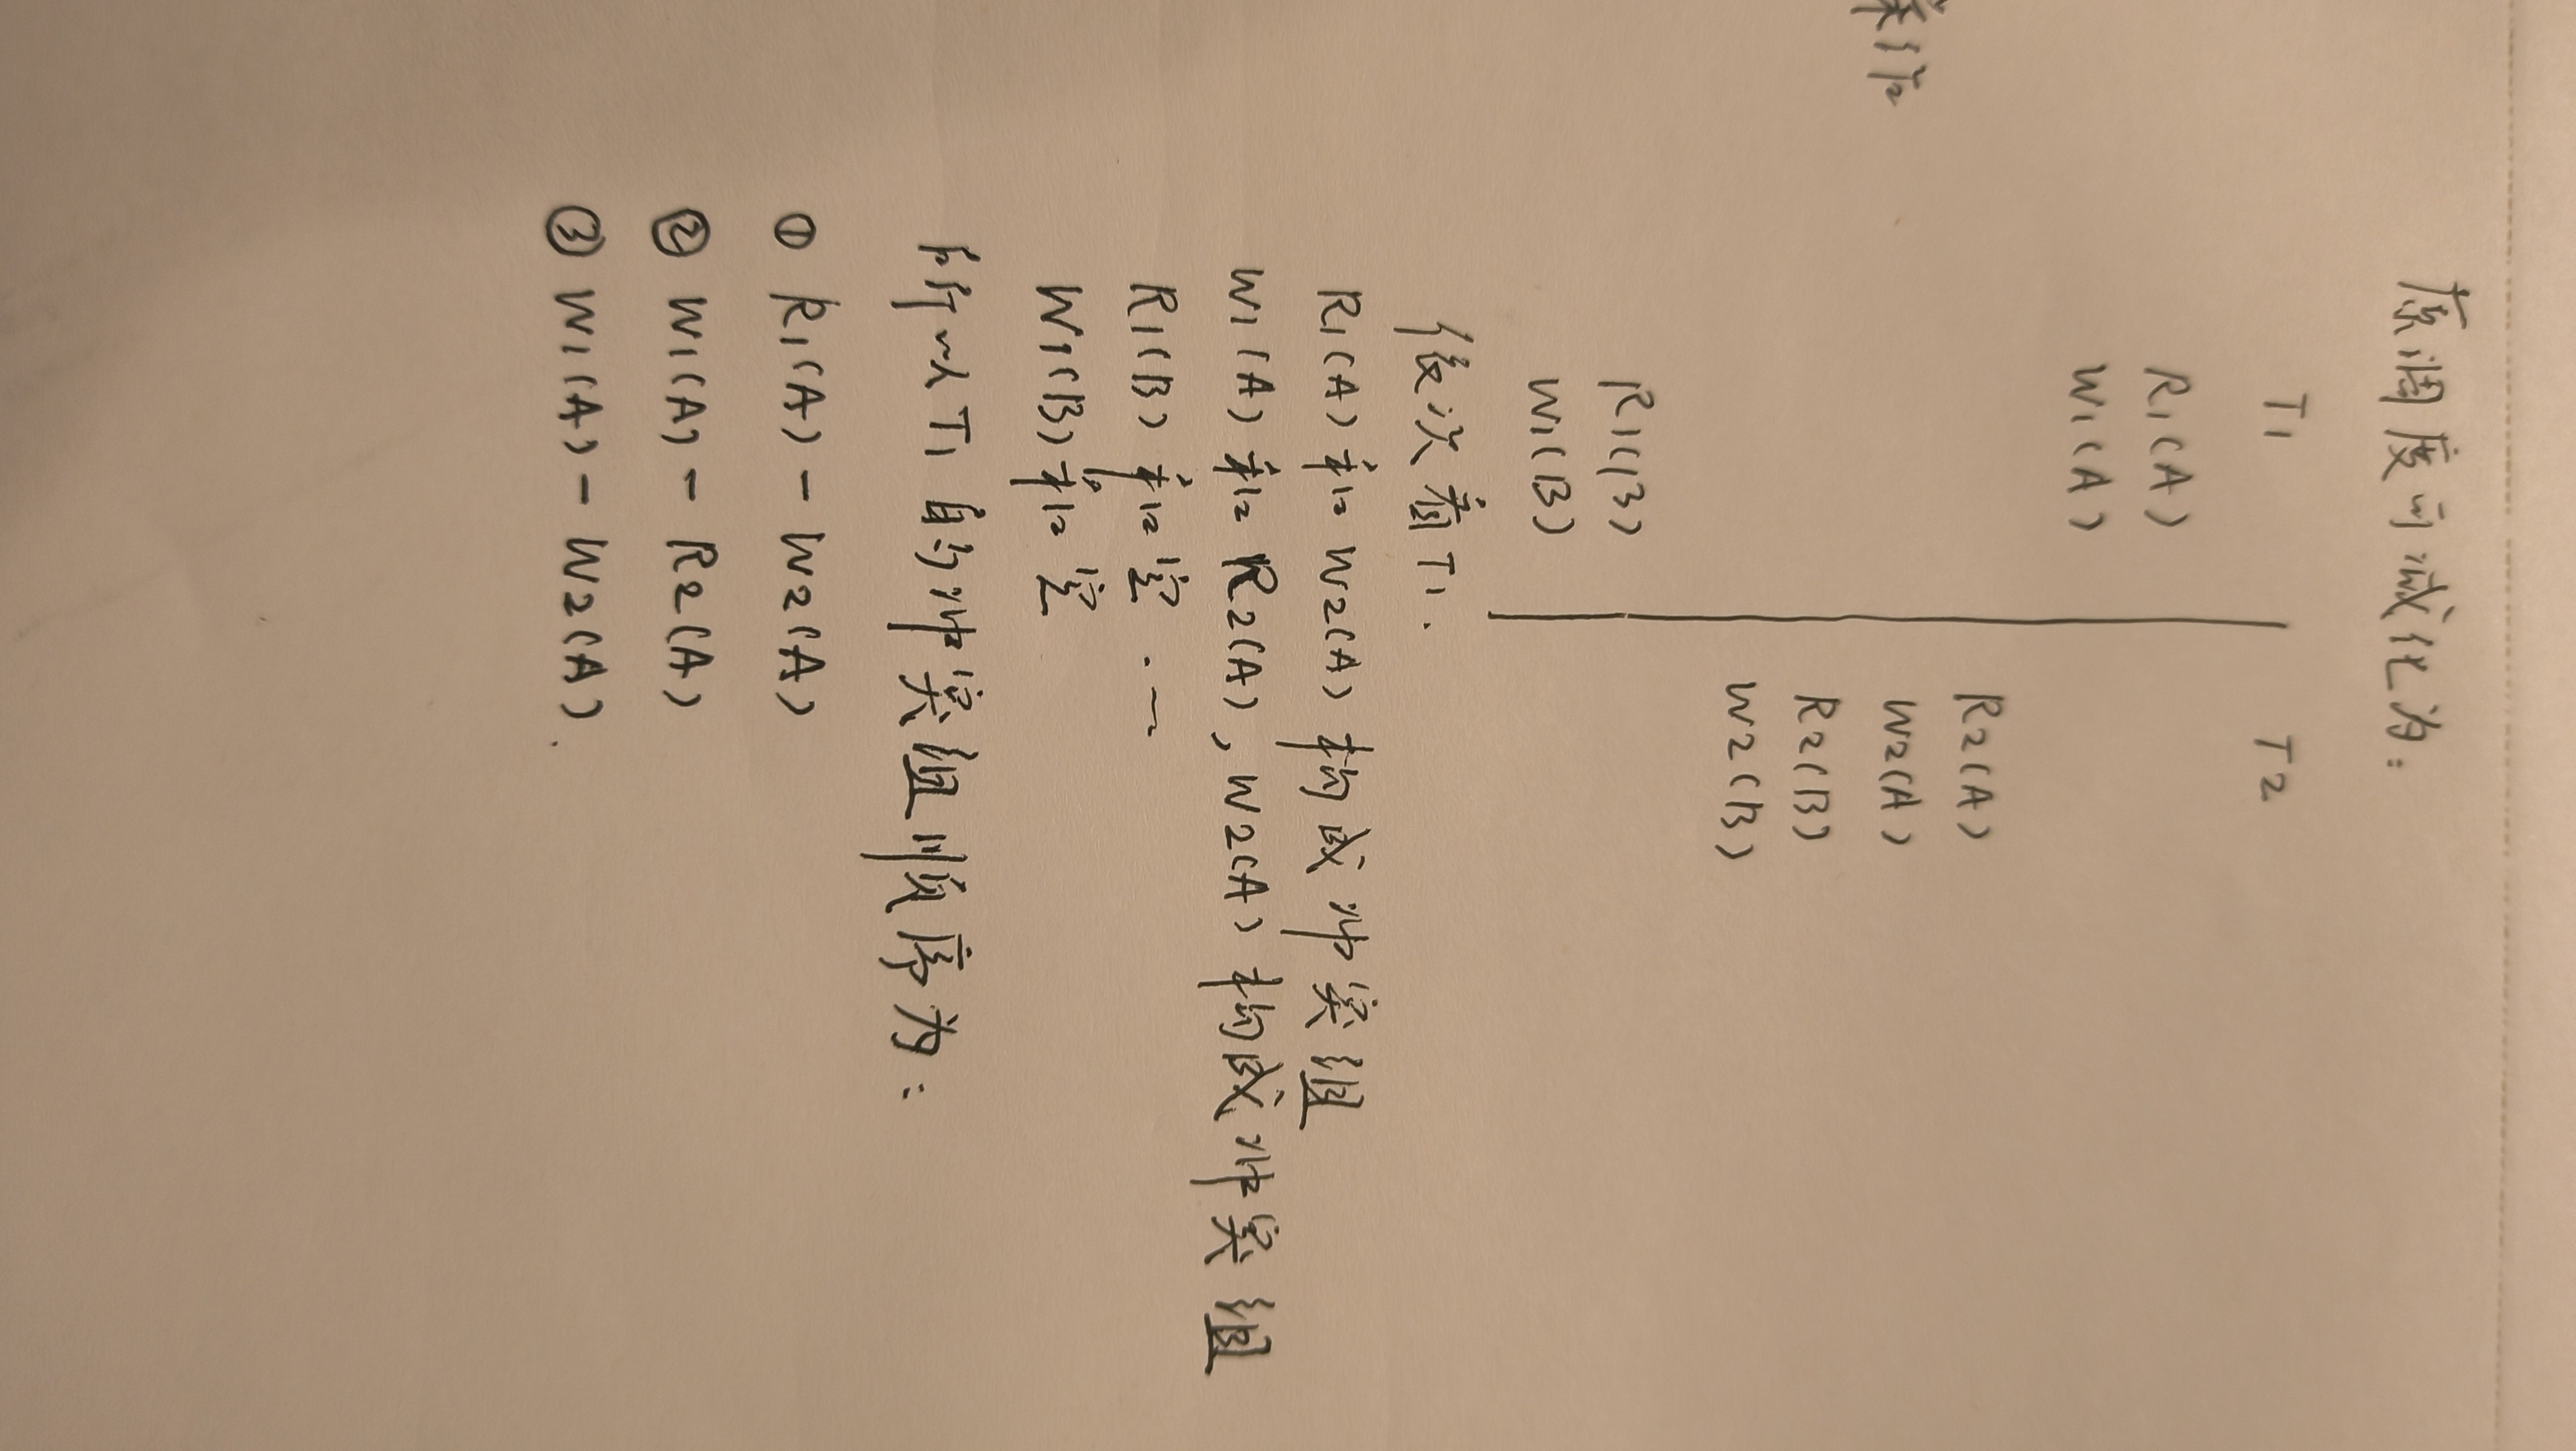 原调度可减化为:
T1 T2
R1(A)
W1(A)
R2(A)
操作
W2(A)
R2(B)
W2(B)
R1(B)
W1(B)
依次看T1.
R1(A) 和 W2(A) 构成冲突组
W1(A) 和 R2(A), W2(A) 构成冲突组
R1(B) 和空 .一
W1(B) 和空
所以T1 的冲突组顺序为:
① R1(A) - W2(A)
② W1(A) - R2(A)
③ W1(A) - W2(A).